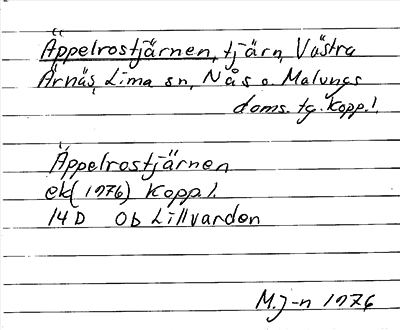 Äppelrostjärnen, tjärn, Västra
Ärnäs, Lima sn, Nås o. Malungs
doms. tg. Kopp.l.
Äppelrostjärnen
ek (1976) Kopp.l.
14 D Ob Lillvarden
M.J-n 1976